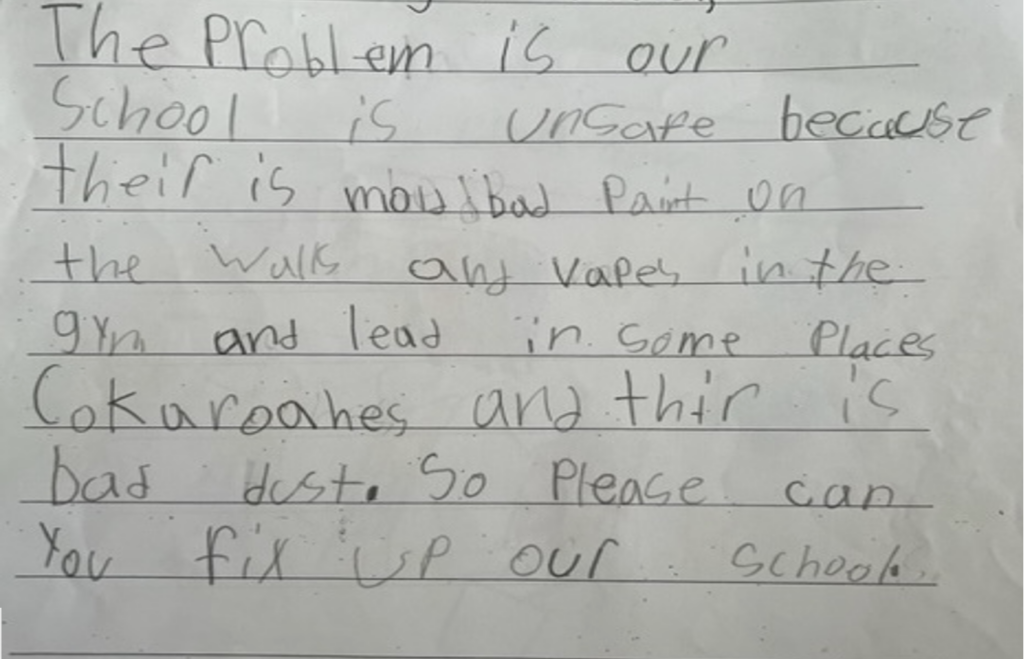 The Problem is our
School is unsafe because
their is mould bad Paint on
the walls and vapes in the
gym and lead in some Places
Cokaroahes and thir is
bad dust. So Please can
You fix up our school.